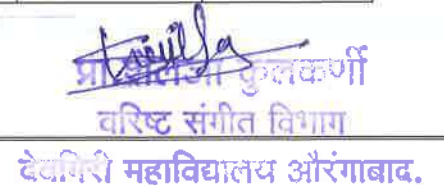 प्रा कुलकर्णी
वरिष्ट संगीत विभाग
देवगिरी महाविद्यालय औरंगाबाद.